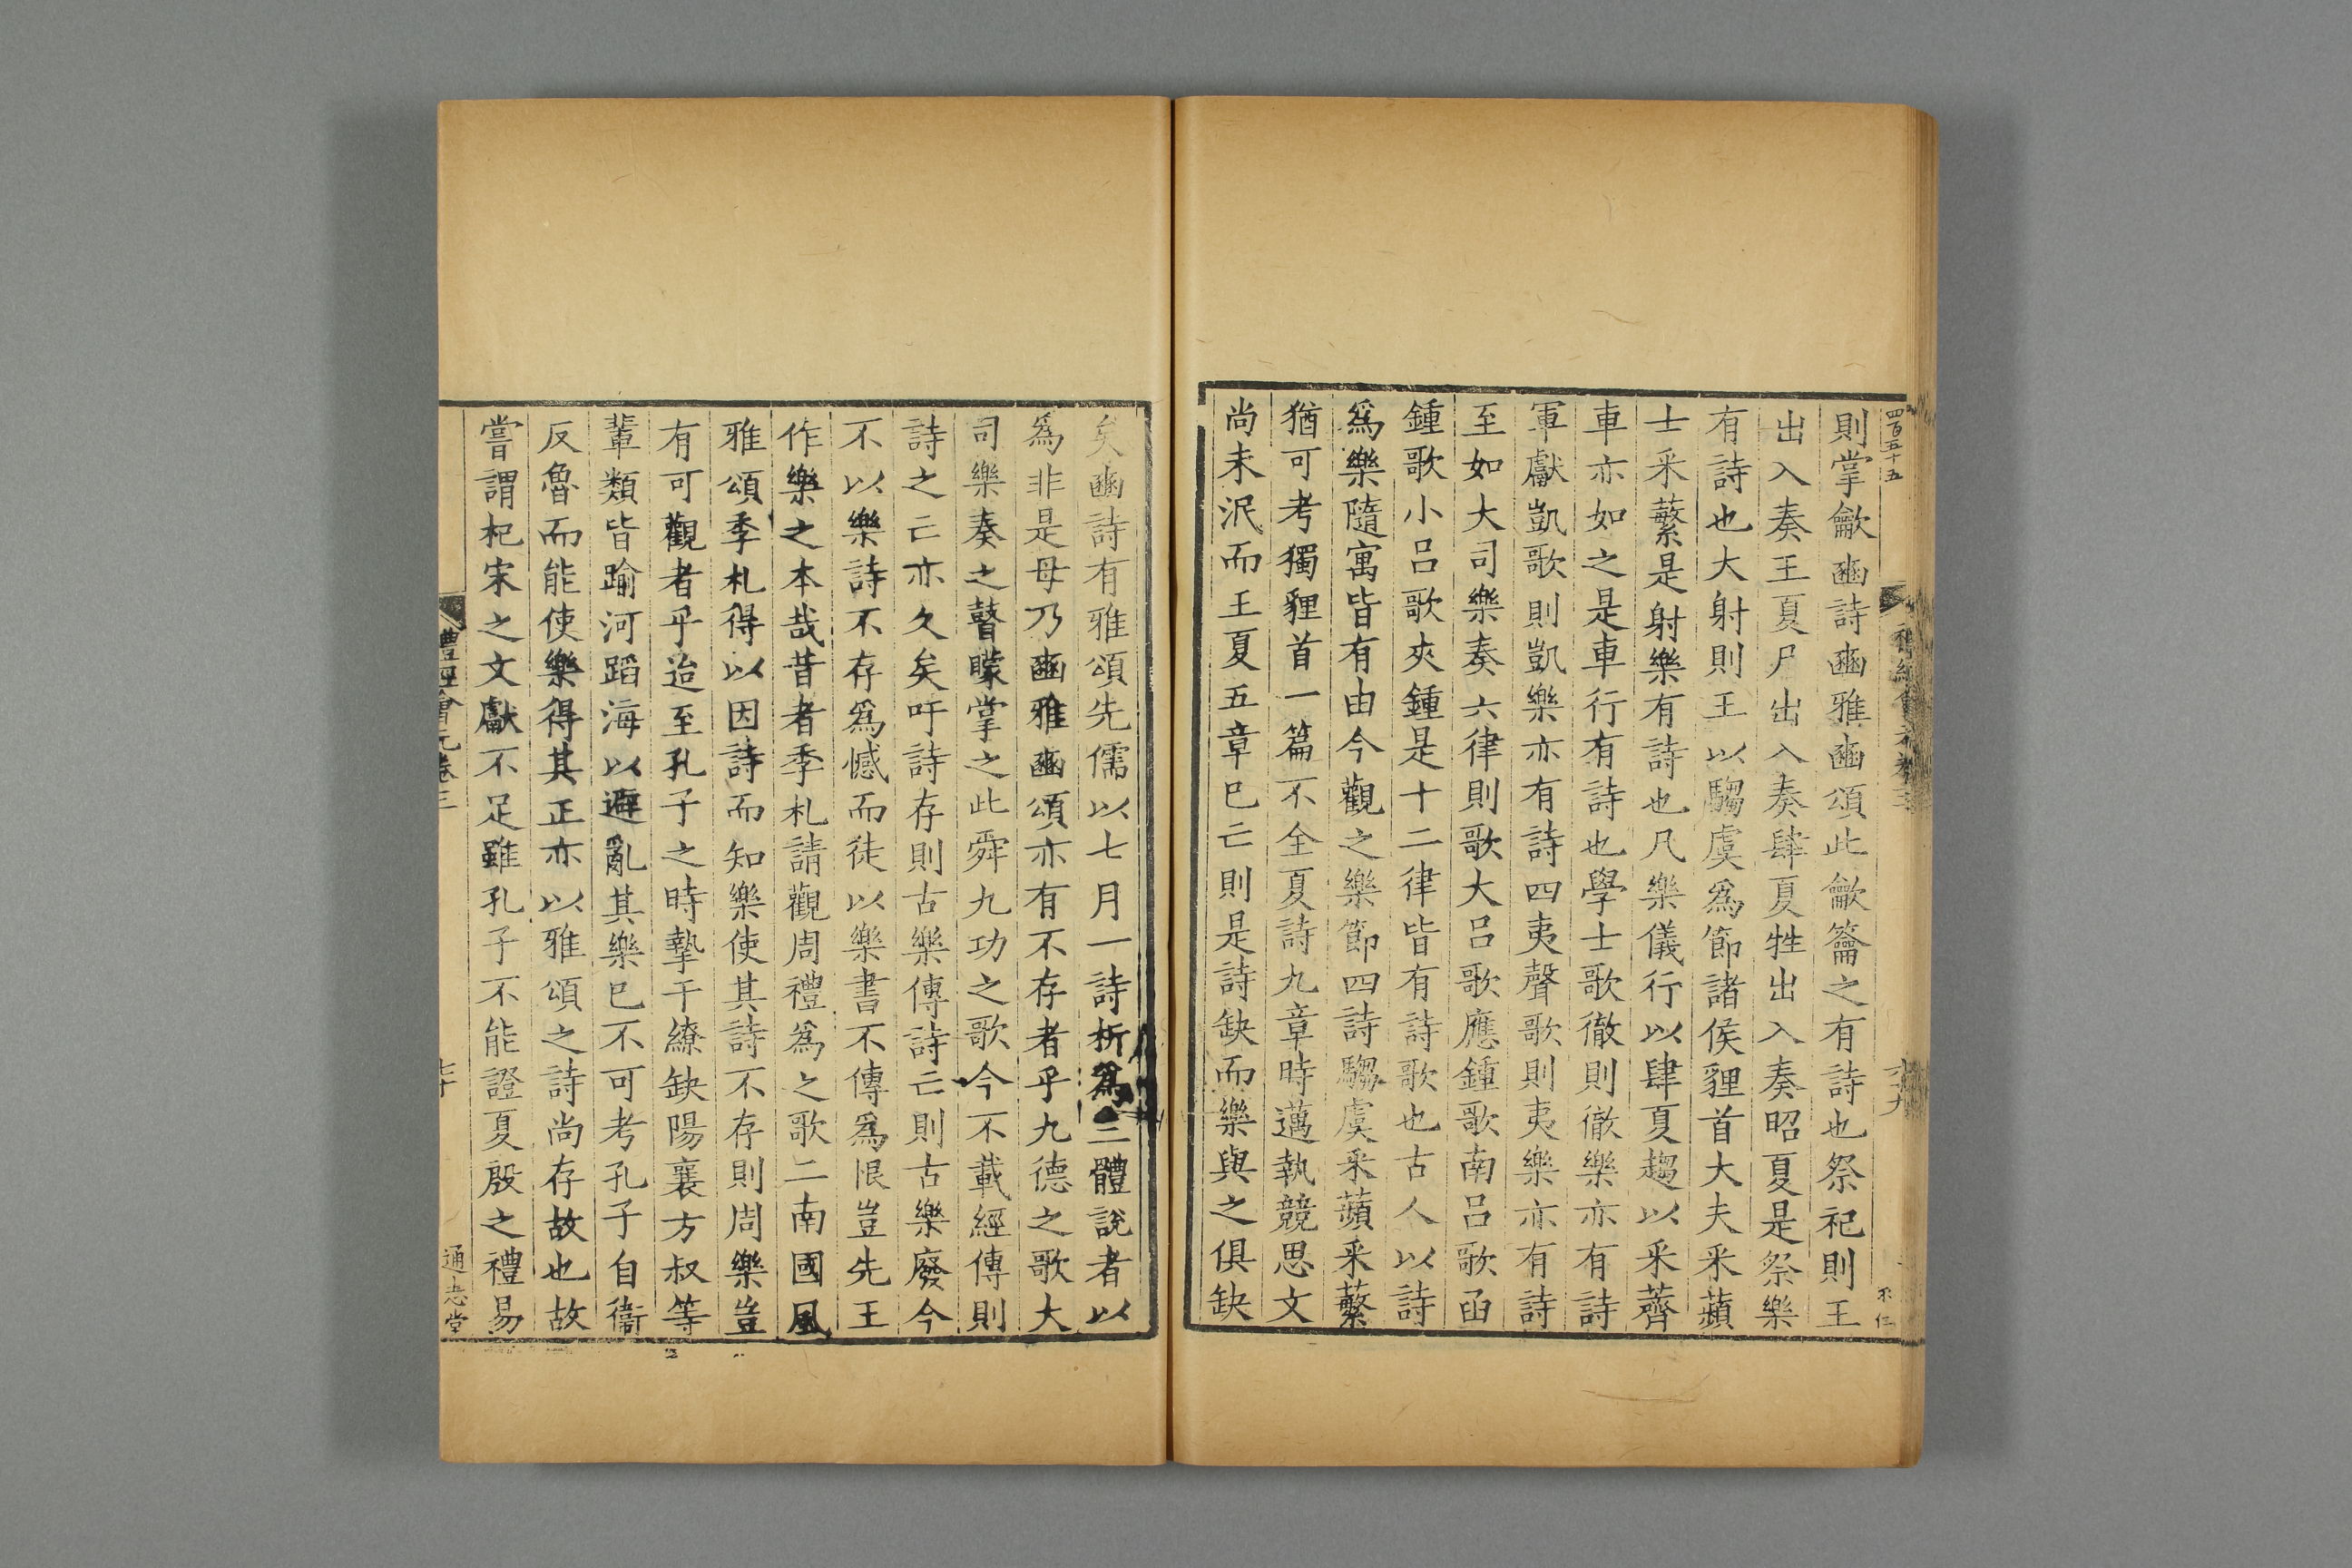 四百五十五
則掌龡豳詩豳雅豳頌此龡籥之有詩也祭祀則王
出入奏王夏尸出入奏肆夏牲出入奏昭夏是祭樂
有詩也大射則王以騶虞爲節諸侯貍首大夫采蘋
士采蘩是射樂有詩也凡樂儀行以肆夏趨以采薺
車亦如之是車行有詩也學士歌徹則徹樂亦有詩
軍獻凱歌則凱樂亦有詩四夷聲歌則夷樂亦有詩
至如大司樂奏六律則歌大呂歌應鍾歌南呂歌函
鍾歌小呂歌夾鍾是十二律皆有詩歌也古人以詩
爲樂隨寓皆有由今觀之樂節四詩騶虞采蘋采蘩
猶可考獨貍首一篇不全夏詩九章時邁執競思文
尚未泯而王夏五章巳亡則是詩缺而樂與之俱缺
矣豳詩有雅頌先儒以七月一詩析爲三體說者以
爲非是毋乃豳雅豳頌亦有不存者乎九德之歌大
司樂奏之瞽矇掌之此舜九功之歌今不載經傳則
詩之亡亦久矣吁詩存則古樂傳詩亡則古樂廢今
不以樂詩不存爲憾而徒以樂書不傳爲恨豈先王
作樂之本哉昔者季札請觀周禮爲之歌二南國風
雅頌季札得以因詩而知樂使其詩不存則周樂豈
有可觀者乎迨至孔子之時摯干繚缺陽襄方叔等
輩類皆踰河蹈海以避亂其樂巳不可考孔子自衞
反魯而能使樂得其正亦以雅頌之詩尚存故也故
嘗謂杞宋之文獻不足雖孔子不能證夏殷之禮易
禮經會元卷三
七十
通志堂